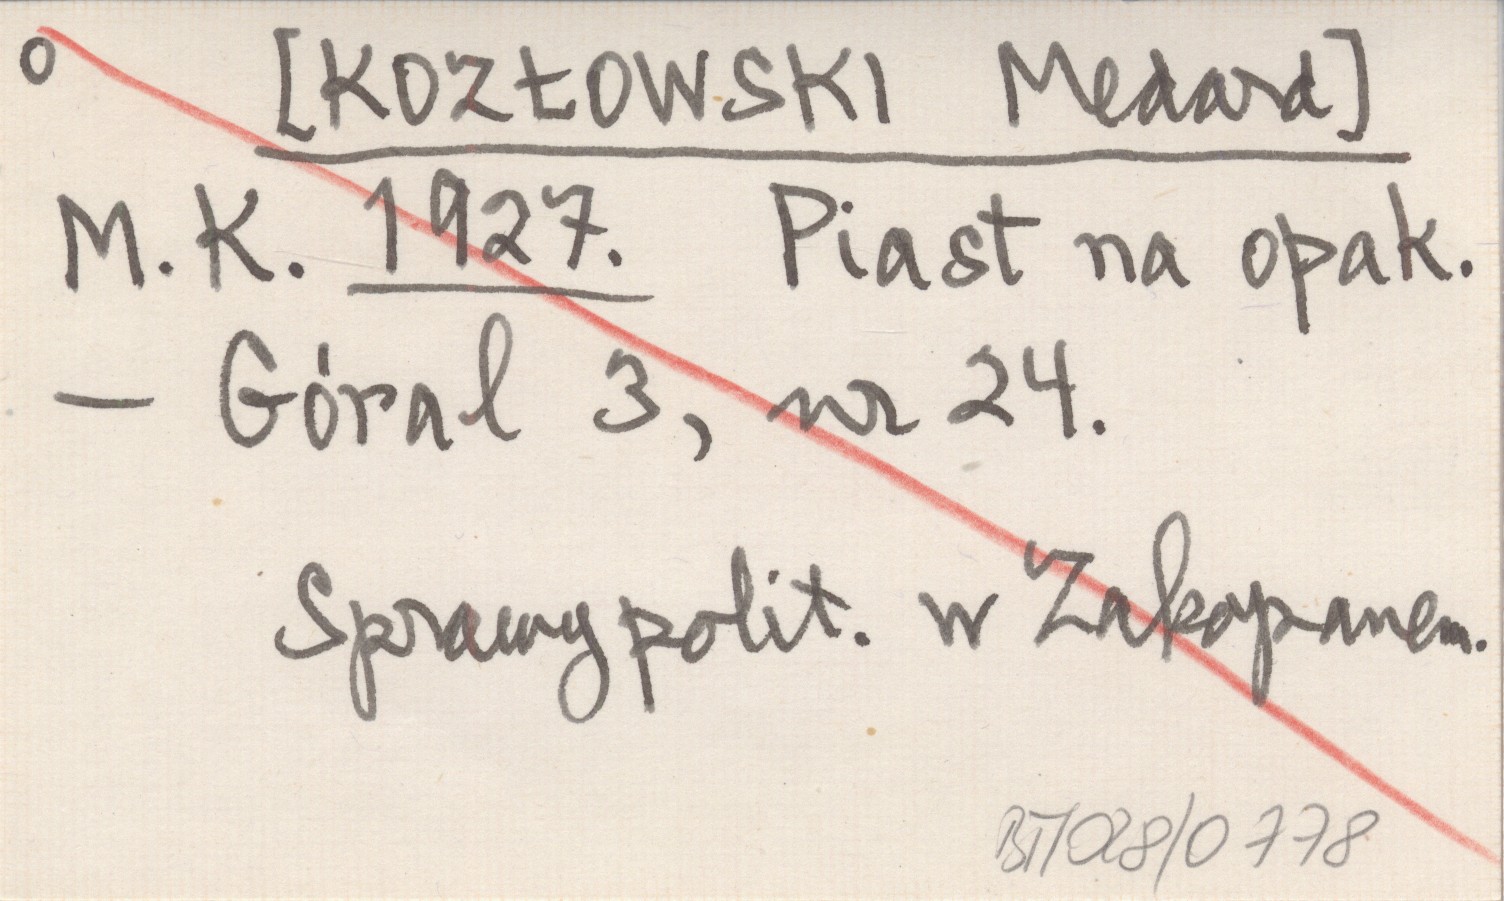 o [KOZŁOWSKI Medard]
M. K. 1927. Piast na opak.
— Góral 3, nr 24.
Sprawy polit. w Zakopanem.
BT/028/0778